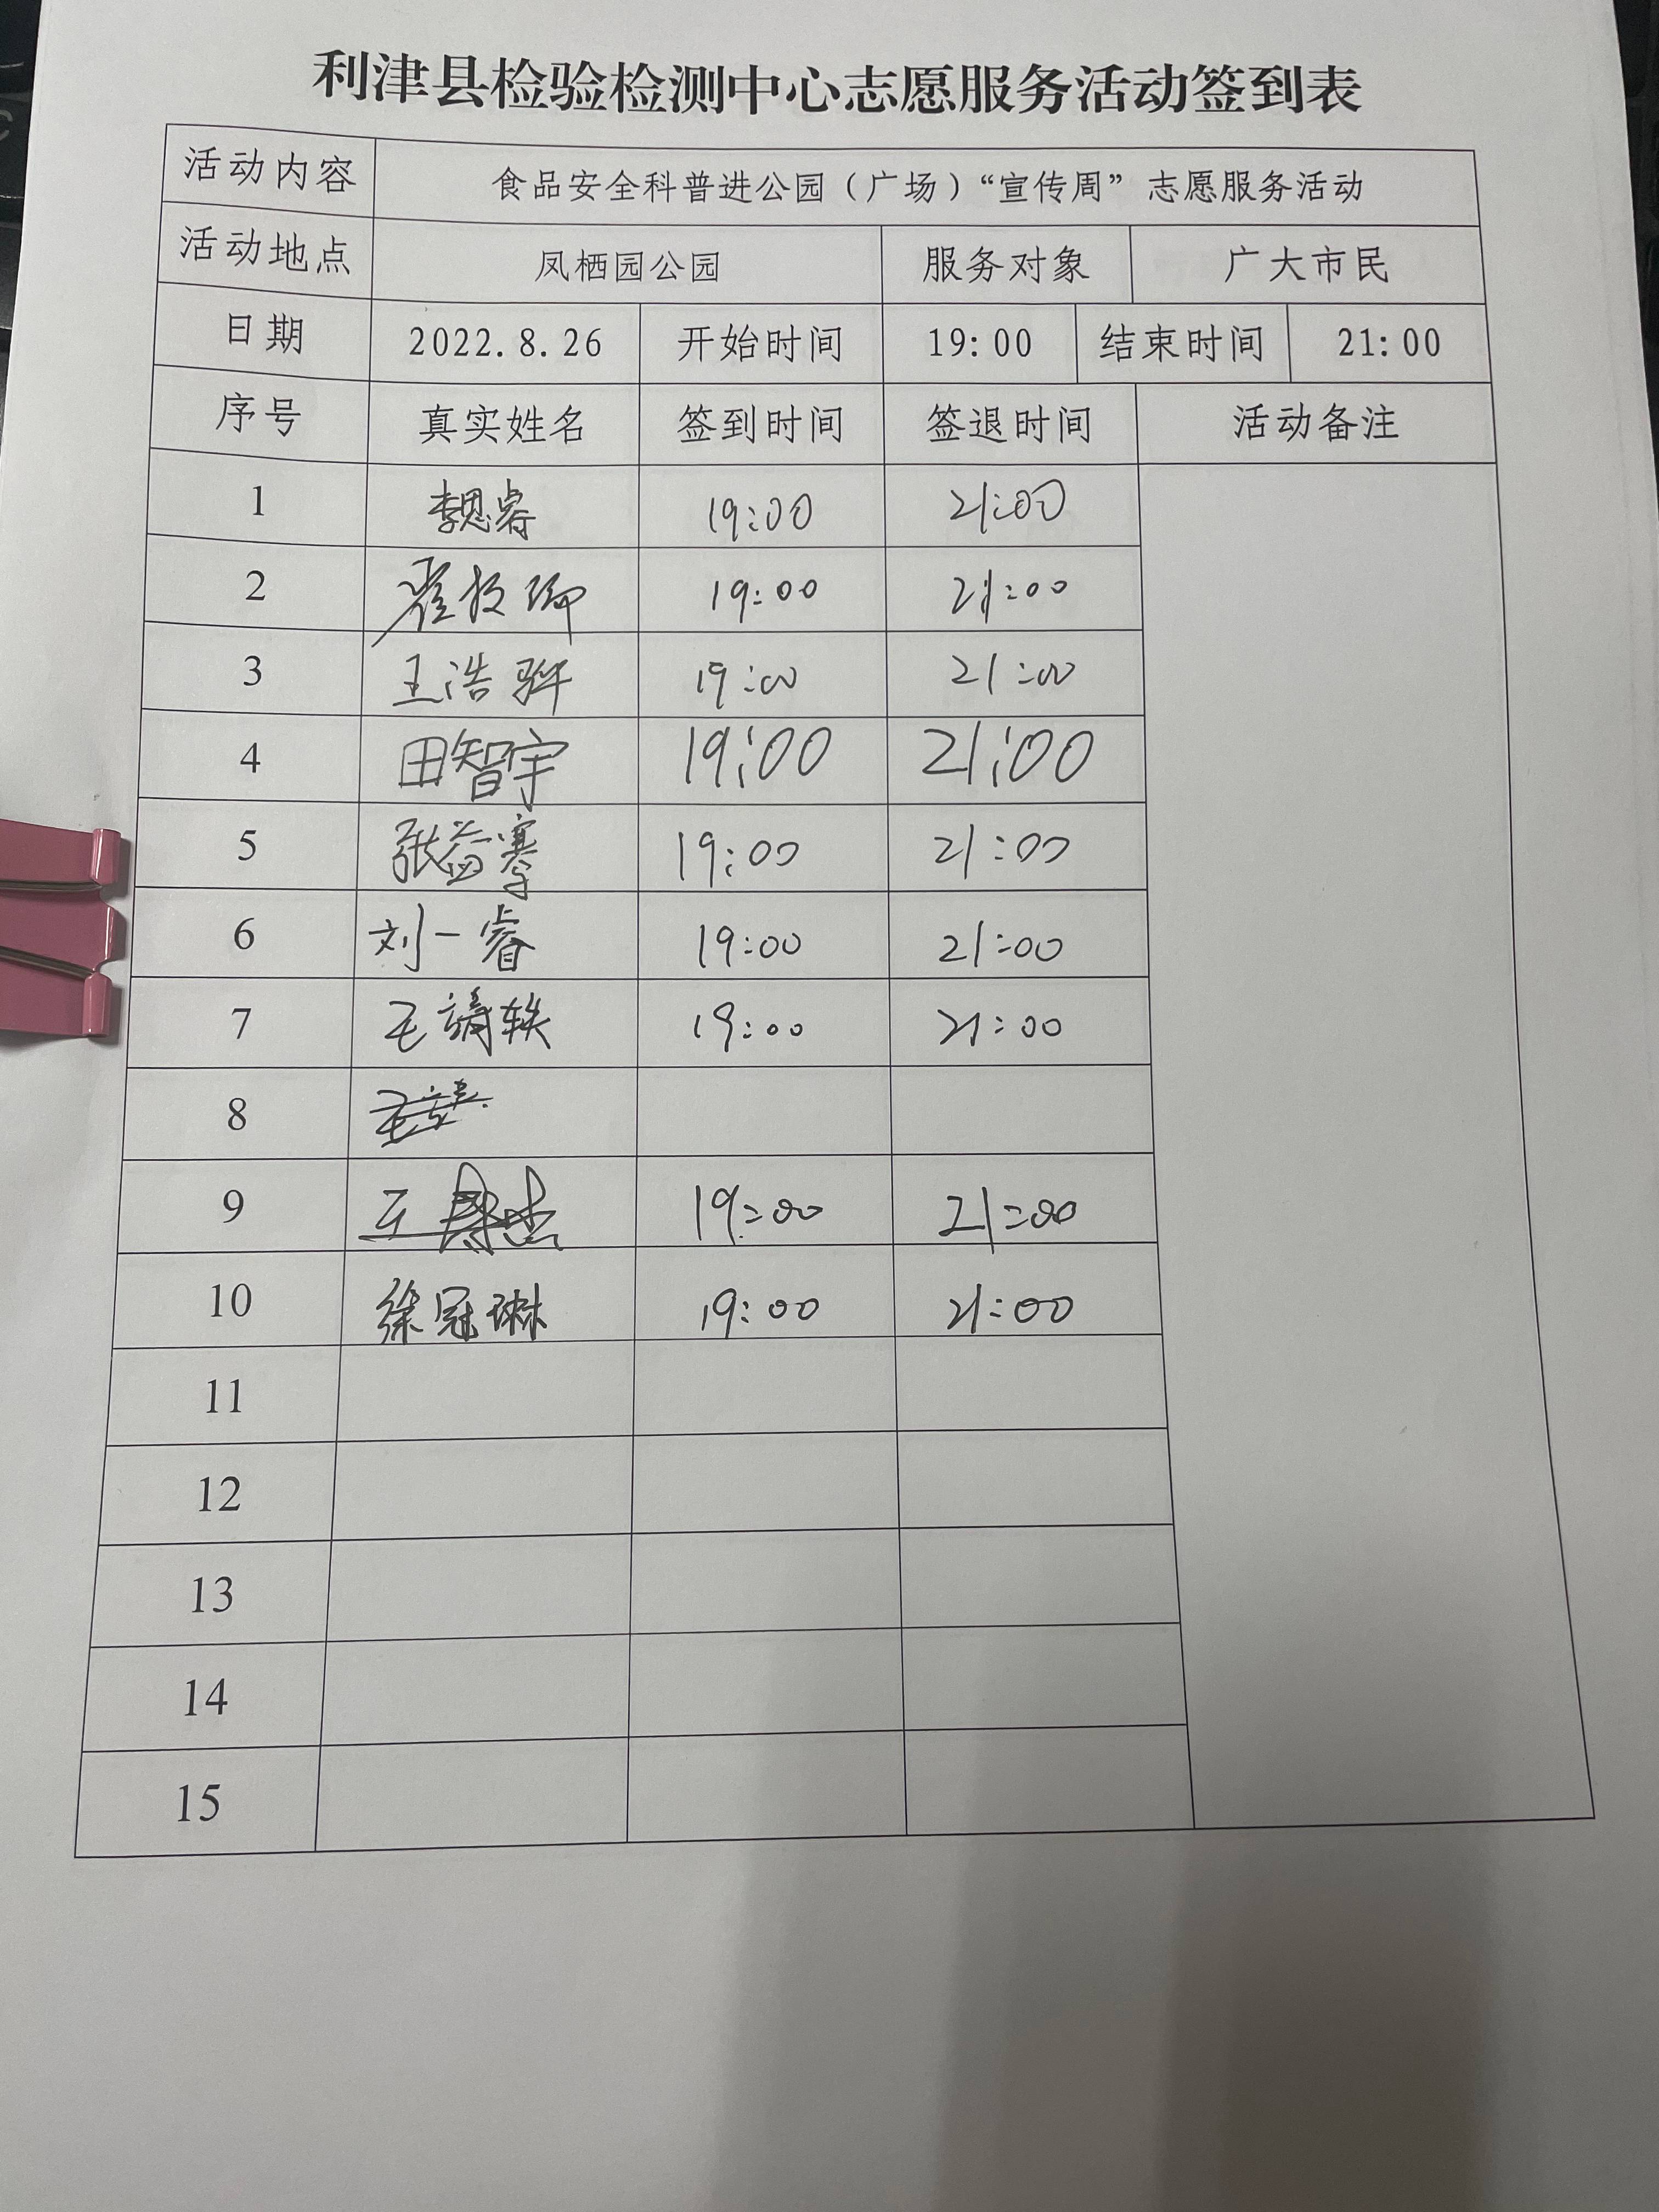 利津县检验检测中心志愿服务活动签到表
活动内容 食品安全科普进公园（广场）“宣传周”志愿服务活动
活动地点 凤栖园公园 服务对象 广大市民
日期 2022.8.26 开始时间 19:00 结束时间 21:00
序号 真实姓名 签到时间 签退时间 活动备注
1 李思睿 19:00 21:00
2 19:00 21:00
3 王浩骅 19:00 21:00
4 田智宇 19:00 21:00
5 张益搴 19:00 21:00
6 刘一睿 19:00 21:00
7 19:00 21:00
8
9 王 19:00 21:00
10 徐冠琳 19:00 21:00
11
12
13
14
15